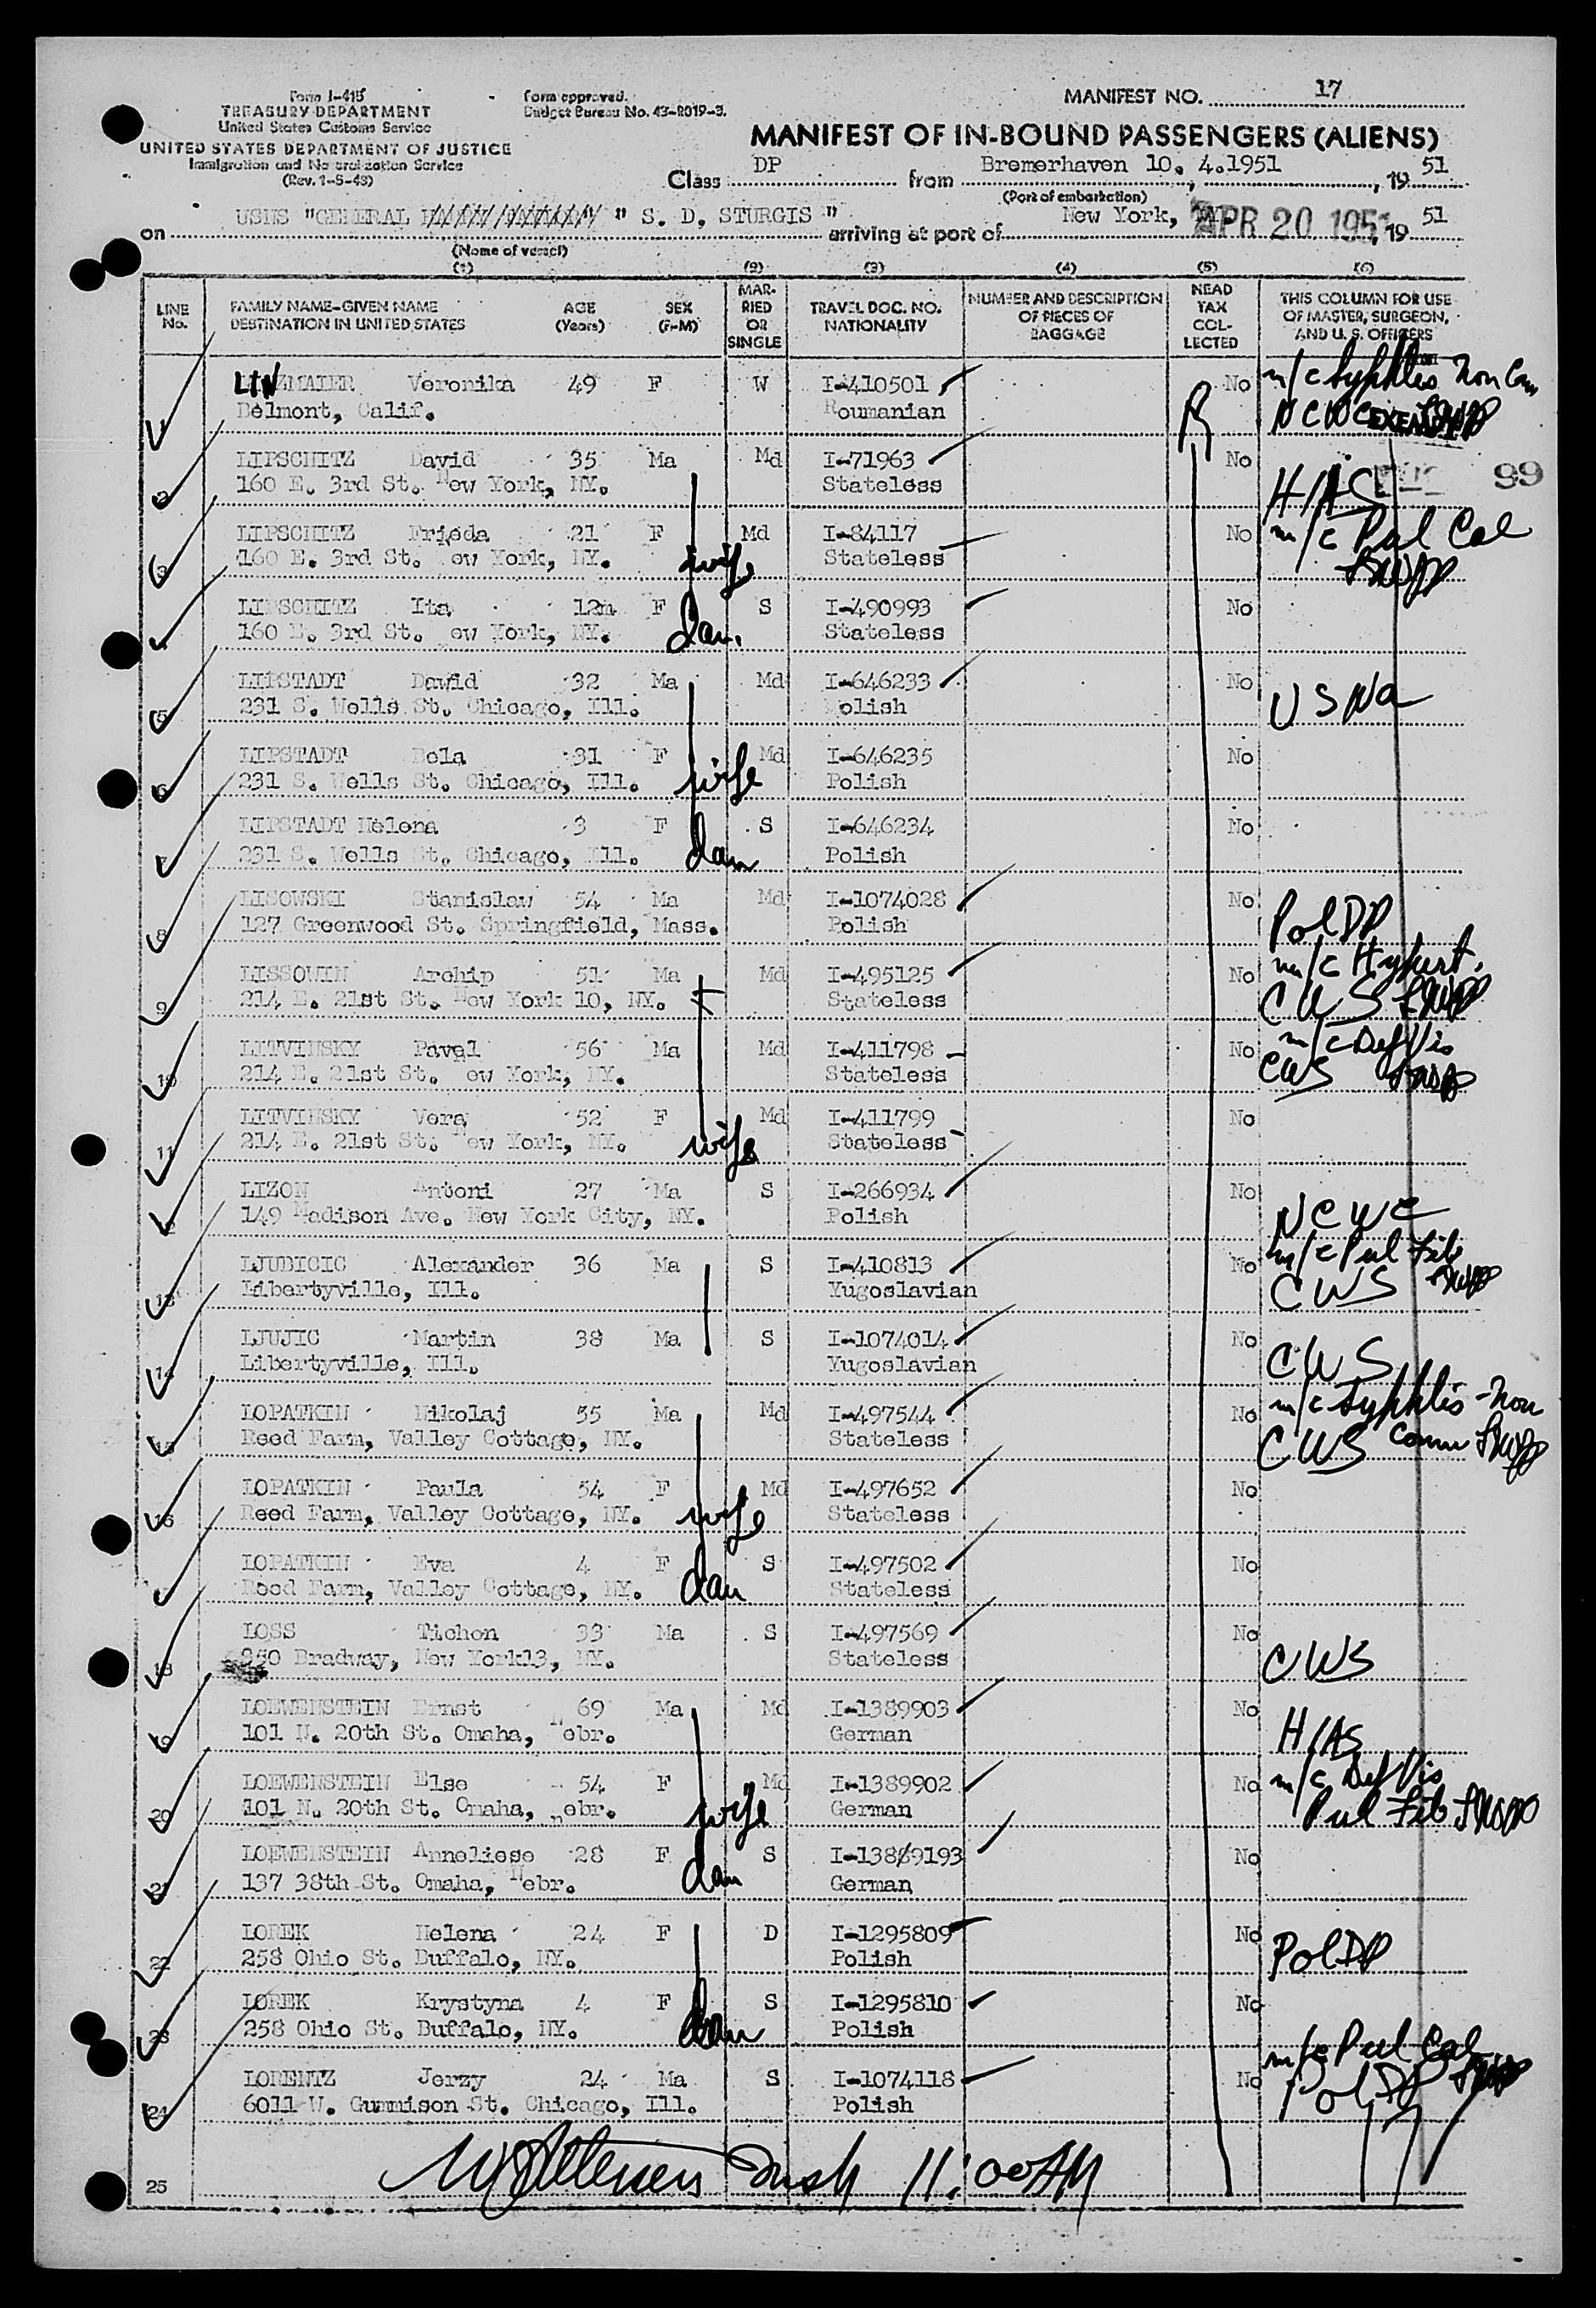 Form I-415
TREASURY DEPARTMENT
United States Customs Service
UNITED STATES DEPARTMENT OF JUSTICE
Immigration and Naturalization Service
(Rev. 1-5-48)
Form approved.
Budget Bureau No. 43-R019-3.
MANIFEST NO. 17
MANIFEST OF IN-BOUND PASSENGERS (ALIENS)
Class DP from Bremerhaven 10. 4.1951, 19 51
(Port of embarkation)
on USNS "GENERAL " S. D. STURGIS " arriving at port of New York, APR 20 1951, 19 51
(Name of vessel)
(1) (2) (3) (4) (5) (6)
LINE No.
FAMILY NAME—GIVEN NAME AGE SEX
DESTINATION IN UNITED STATES (Years) (F-M)
MARRIED OR SINGLE
TRAVEL DOC. NO. NATIONALITY
NUMBER AND DESCRIPTION OF PIECES OF BAGGAGE
HEAD TAX COLLECTED
THIS COLUMN FOR USE OF MASTER, SURGEON, AND U. S. OFFICERS
1 LINZMAIER Veronika 49 F W I-410501 No m/c Syphilis Non Com
Belmont, Calif. Roumanian NCWC
2 LIPSCHITZ David 35 Ma Md I-71963 No 99
160 E. 3rd St. New York, NY. Stateless HIAS
3 LIPSCHITZ Frieda 21 F Md I-84117 No m/c Pul Cal
160 E. 3rd St. ew York, NY. wife Stateless
4 LIPSCHITZ Ita 12m F S I-490993 No
160 E. 3rd St. ew York, NY. dau. Stateless
5 LIPSTADT Dawid 32 Ma Md I-646233 No USNA
231 S. Wells St. Chicago, Ill. Polish
6 LIPSTADT Bela 31 F Md I-646235 No
231 S. Wells St. Chicago, Ill. wife Polish
7 LIPSTADT Helena 3 F S I-646234 No
231 S. Wells St. Chicago, Ill. dau Polish
8 LISOWSKI Stanislaw 54 Ma Md I-1074028 No PolDP
127 Greenwood St. Springfield, Mass. Polish
9 LISSOWIN Archip 51 Ma Md I-495125 No m/c Hypert.
214 E. 21st St. New York 10, NY. Stateless CWS
10 LITVINSKY Pavel 56 Ma Md I-411798 No m/c Def Vis
214 E. 21st St. ew York, NY. Stateless CWS
11 LITVINSKY Vera 52 F Md I-411799 No
214 E. 21st St. New York, NY. wife Stateless
12 LIZON Antoni 27 Ma S I-266934 No NCWC
149 Madison Ave. New York City, NY. Polish
13 LJUBICIC Alexander 36 Ma S I-410813 No m/c Pul Fib
Libertyville, Ill. Yugoslavian CWS
14 LJUJIC Martin 38 Ma S I-1074014 No CWS
Libertyville, Ill. Yugoslavian
15 LOPATKIN Nikolaj 55 Ma Md I-497544 No m/c Syphilis - Non
Reed Farm, Valley Cottage, NY. Stateless CWS Comm
16 LOPATKIN Paula 54 F Md I-497652 No
Reed Farm, Valley Cottage, NY. wife Stateless
17 LOPATKIN Eva 4 F S I-497502 No
Reed Farm, Valley Cottage, NY. dau Stateless
18 LOSS Tichon 33 Ma S I-497569 No CWS
250 Bradway, New York13, NY. Stateless
19 LOEWENSTEIN Ernst 69 Ma Md I-1389903 No HIAS
101 N. 20th St. Omaha, Nebr. German
20 LOEWENSTEIN Else 54 F Md I-1389902 No m/c Def Vis
101 N. 20th St. Omaha, nebr. wife German Pul Fib
21 LOEWENSTEIN Anneliese 28 F S I-1389193 No
137 38th St. Omaha, Nebr. dau German
22 LOREK Helena 24 F D I-1295809 No PolDP
258 Ohio St. Buffalo, NY. Polish
23 LOREK Krystyna 4 F S I-1295810 No
258 Ohio St. Buffalo, NY. dau Polish
24 LORENTZ Jerzy 24 Ma S I-1074118 No m/c Pul Cal
6011 W. Gunnison St. Chicago, Ill. Polish PolDP
25 11:00AM